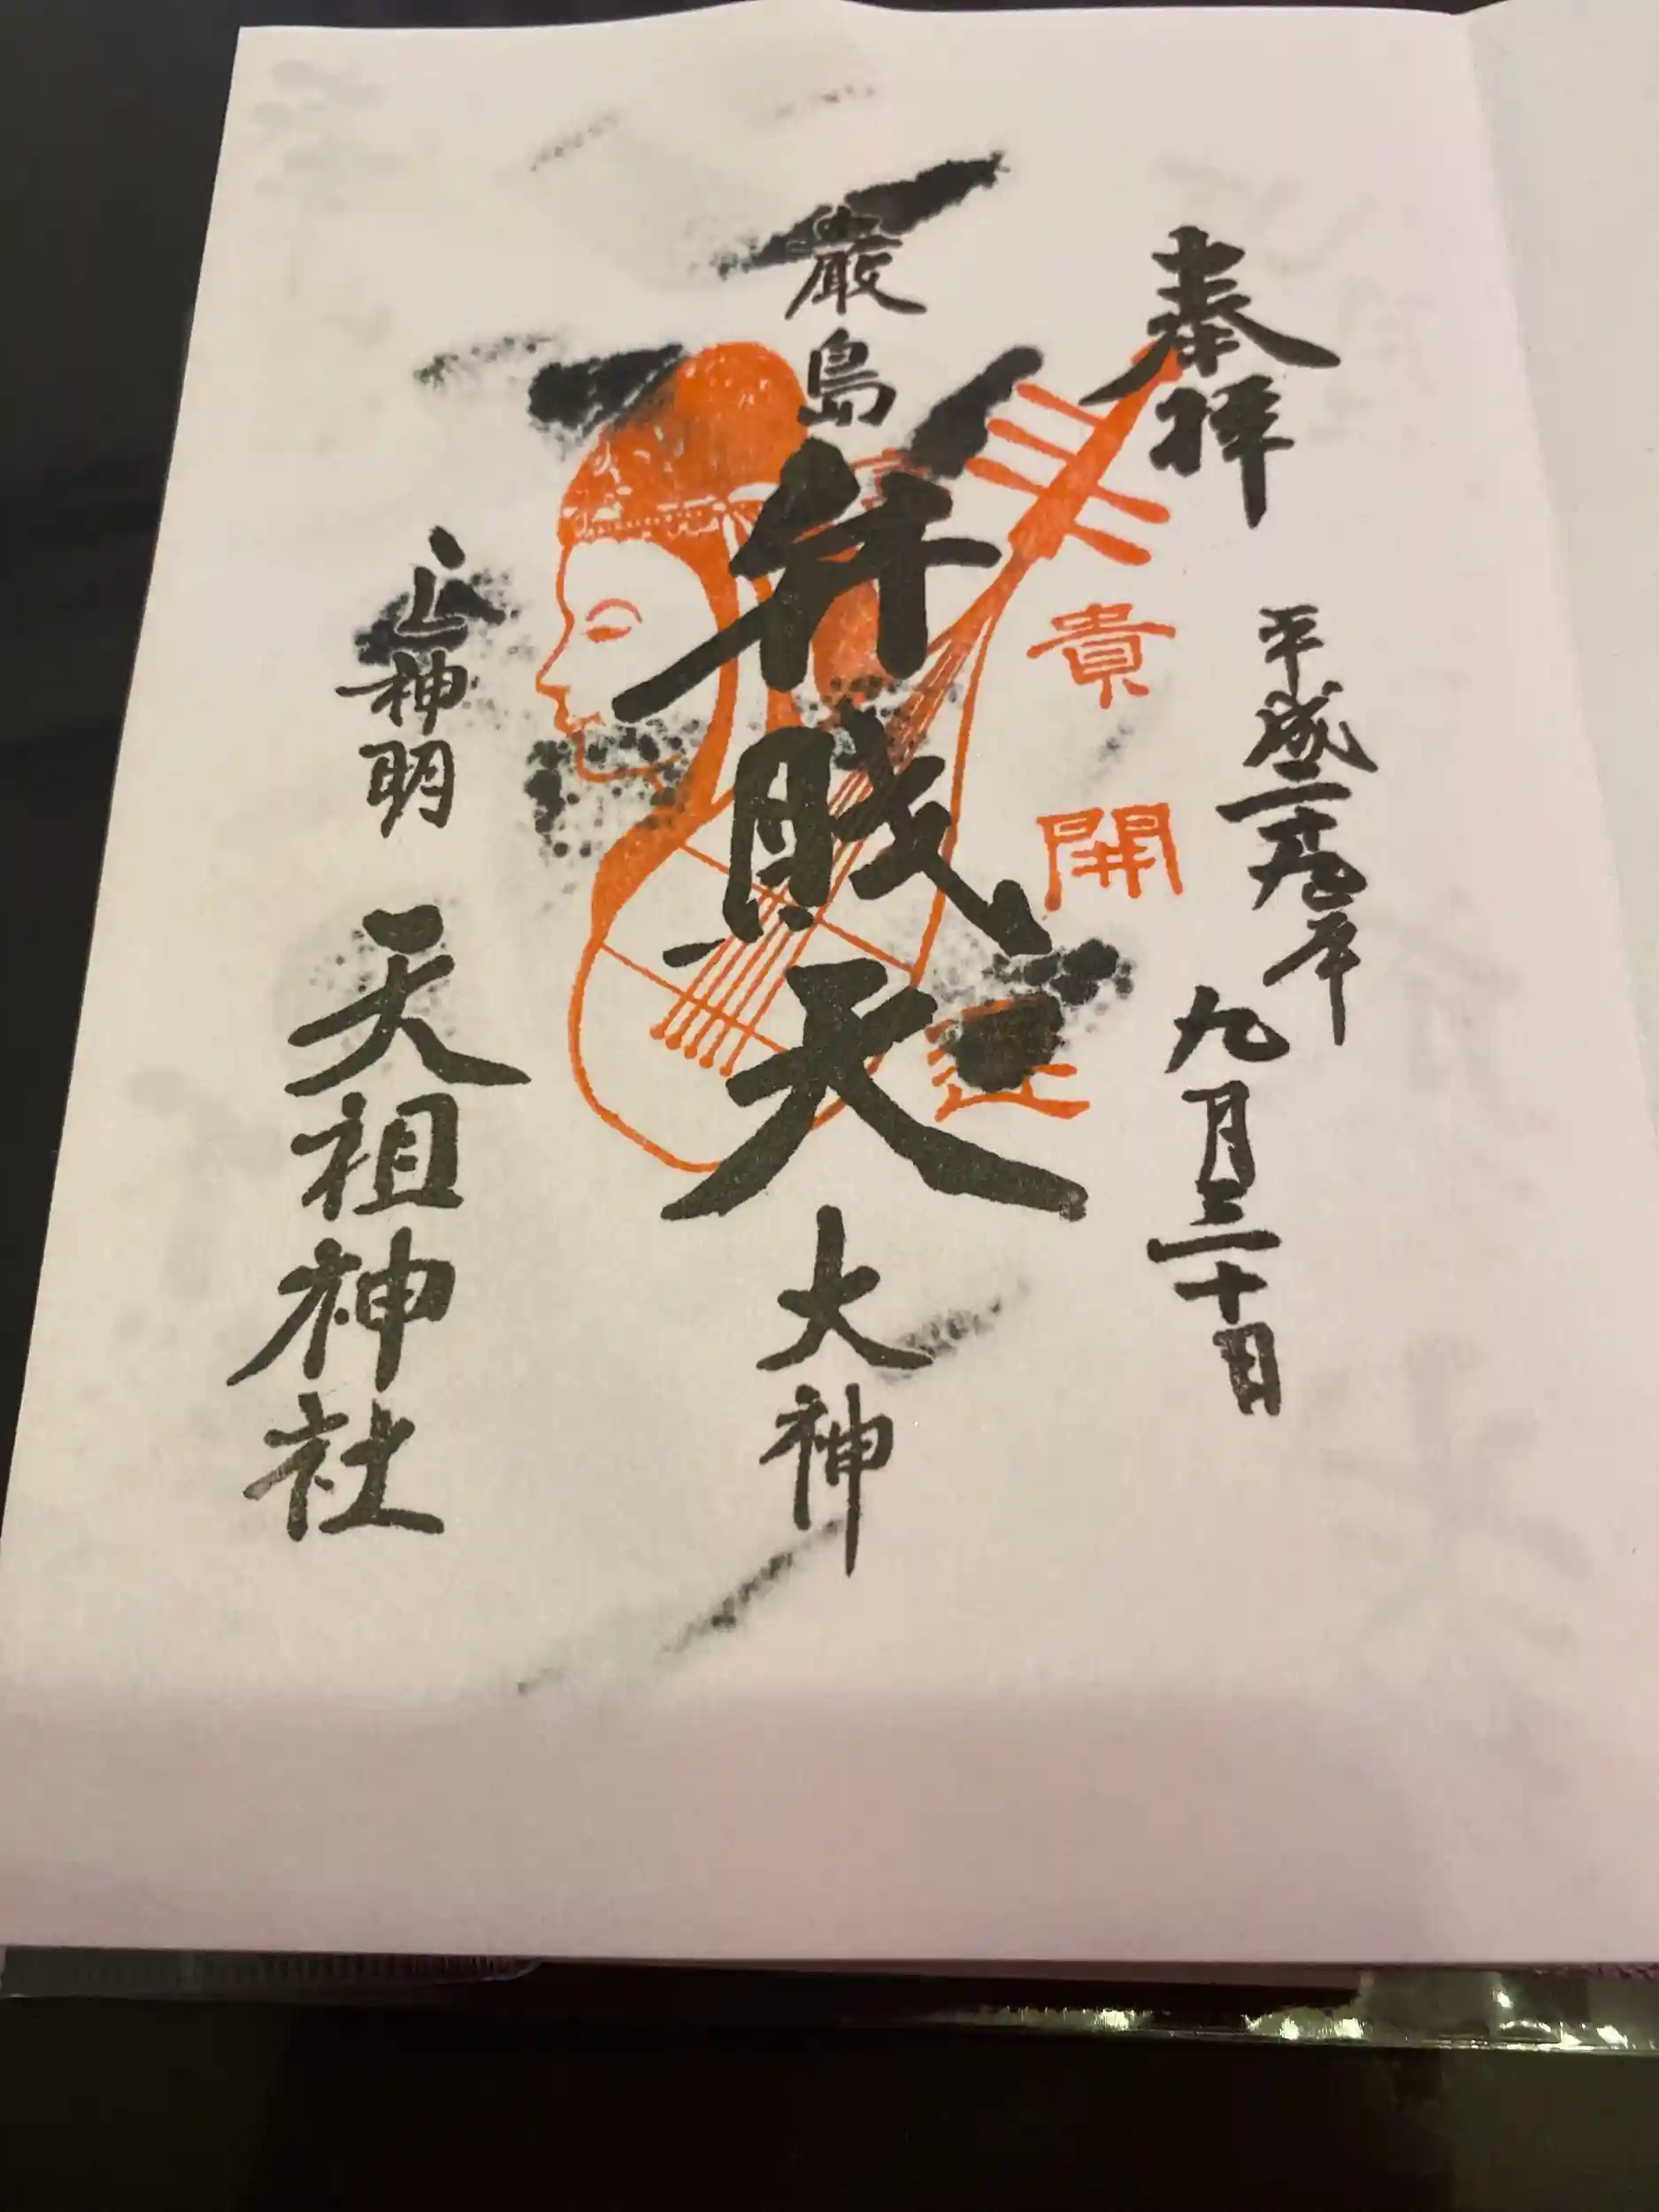 奉拝
平成二十九年 九月三十日
貴開運
厳島弁戝天大神
上神明 天祖神社